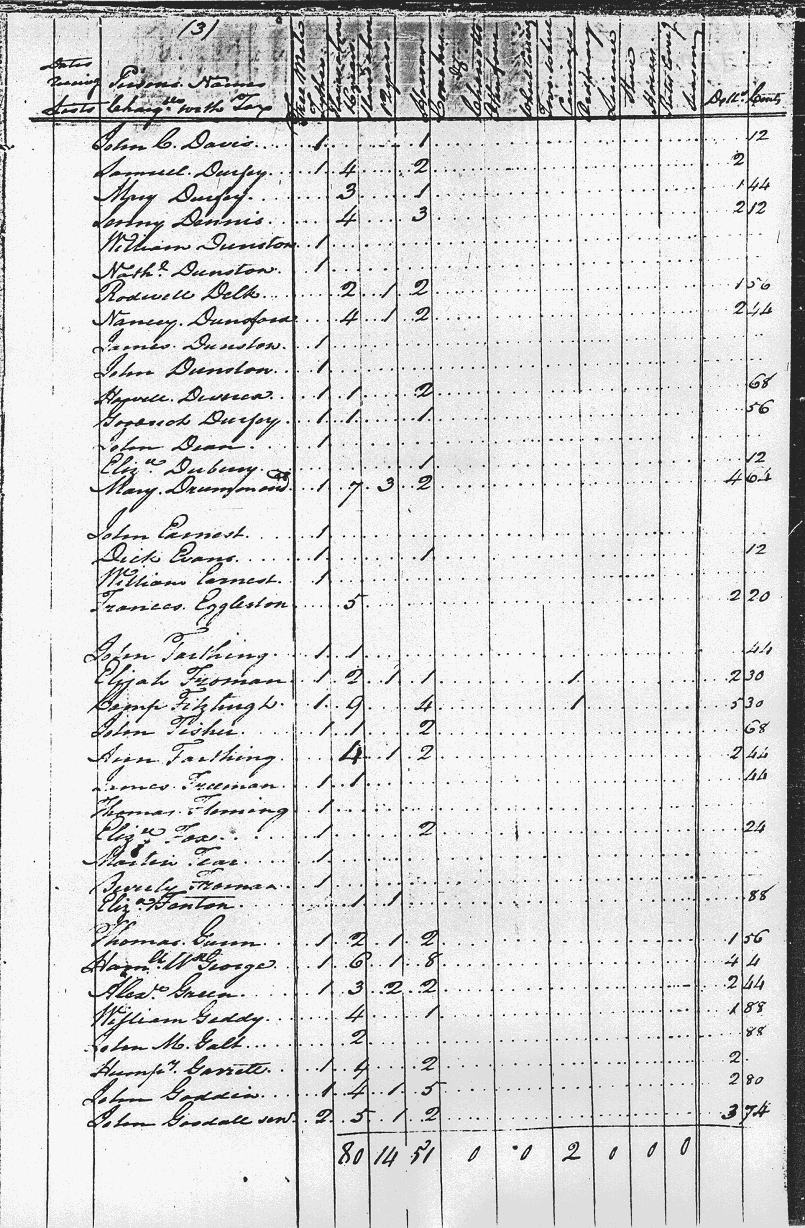 (3)
Persons Names
Chargble with Tax Dolls Cents
John C. Davis 1 1 12
Samuel Durfey 1 4 2 2
Mary Durfey 3 1 1 44
Jenny Dennis 4 3 2 12
William Dunston 1
Nathl Dunston 1
Rodwell Delk 2 1 2 1 56
Nancy Dunsford 4 1 2 2 44
James Dunston 1
John Dunston 1
1 1 2 68
Durfey 1 1 1 56
John Dean 1
Eliza 1 12
Mary Drummond 1 7 3 2 4 64
John Earnest 1
Dick Evans 1 1 12
William Earnest 1
Frances Eggleston 5 2 20
John Farthing 1 1 44
Elijah Froman 1 2 1 1 1 2 30
Camp Fitzhugh 1 9 4 1 5 30
John Fisher 1 1 2 68
Ann Farthing 4 1 2 2 44
James Freeman 1 1 44
Thomas Fleming 1
Eliza Fox 1 2 24
Martin Fear 1
Beverly Froman 1
Eliza Fenton 1 1 88
Thomas Gunn 1 2 1 2 1 56
Wm George 1 6 1 8 4 4
Alexr Green 1 3 2 2 2 44
William Geddy 4 1 1 88
John M. Galt 2 88
Humpy Garrett 1 4 2 2
John Goddin 1 4 1 5 2 80
John Goodall senr 2 5 1 2 3 74
80 14 51 0 0 2 0 0 0